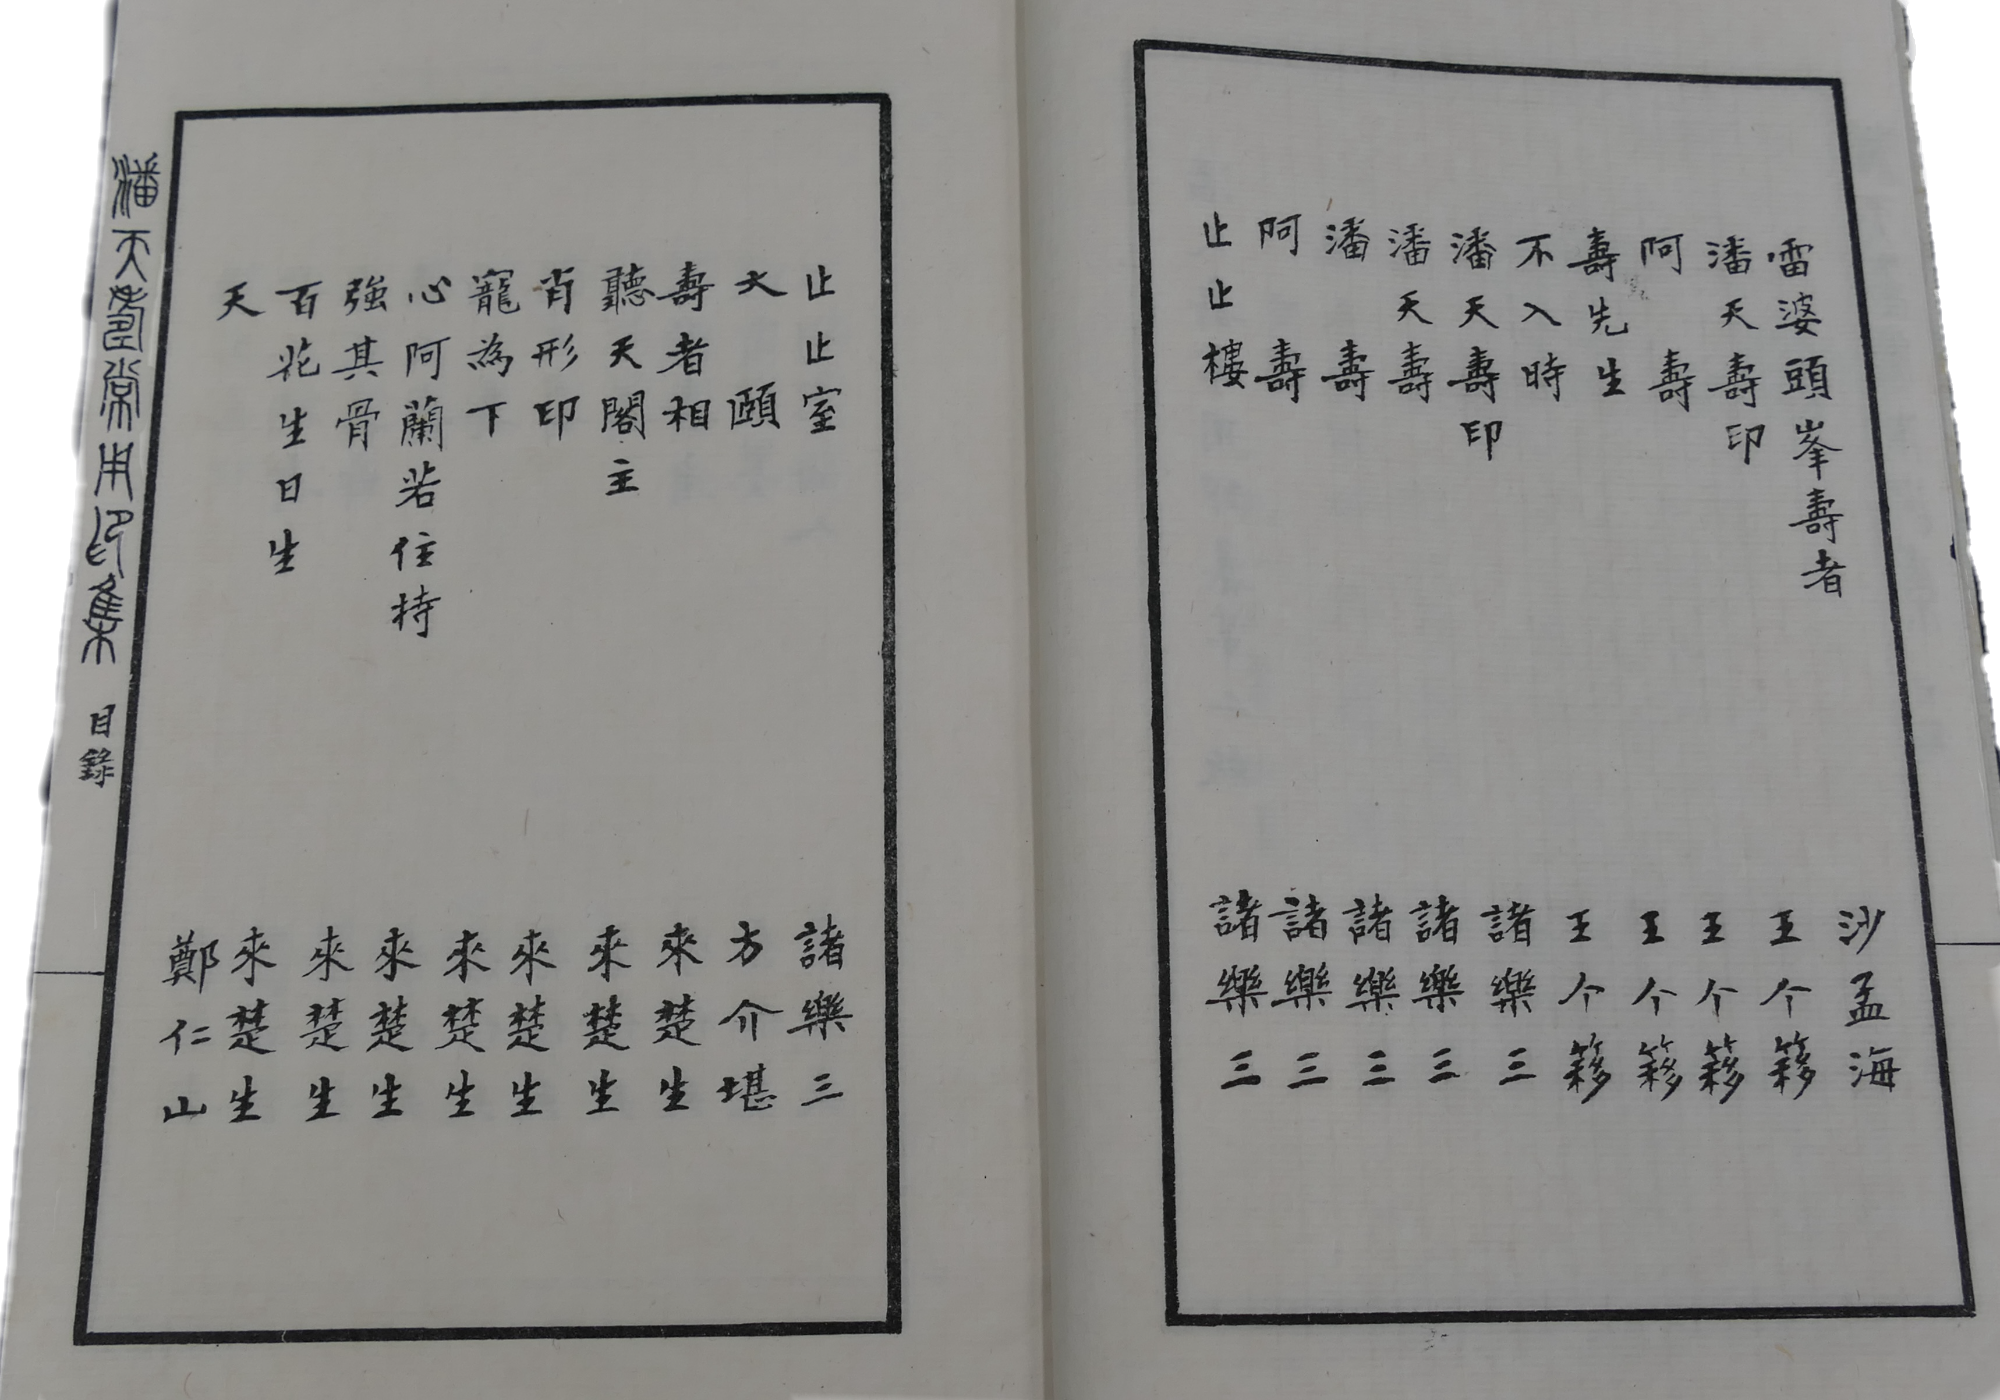 雷婆頭峯壽者 沙孟海
潘天壽印 王个簃
阿壽 王个簃
壽先生 王个簃
不入時 王个簃
潘天壽印 諸樂三
潘天壽 諸樂三
潘壽 諸樂三
阿壽 諸樂三
止止樓 諸樂三
止止室 諸樂三
大頤 方介堪
壽者相 來楚生
聽天閣主 來楚生
肖形印 來楚生
寵為下 來楚生
心阿蘭若住持 來楚生
強其骨 來楚生
百花生日生 來楚生
天 鄭仁山
潘天壽常用印集 目錄